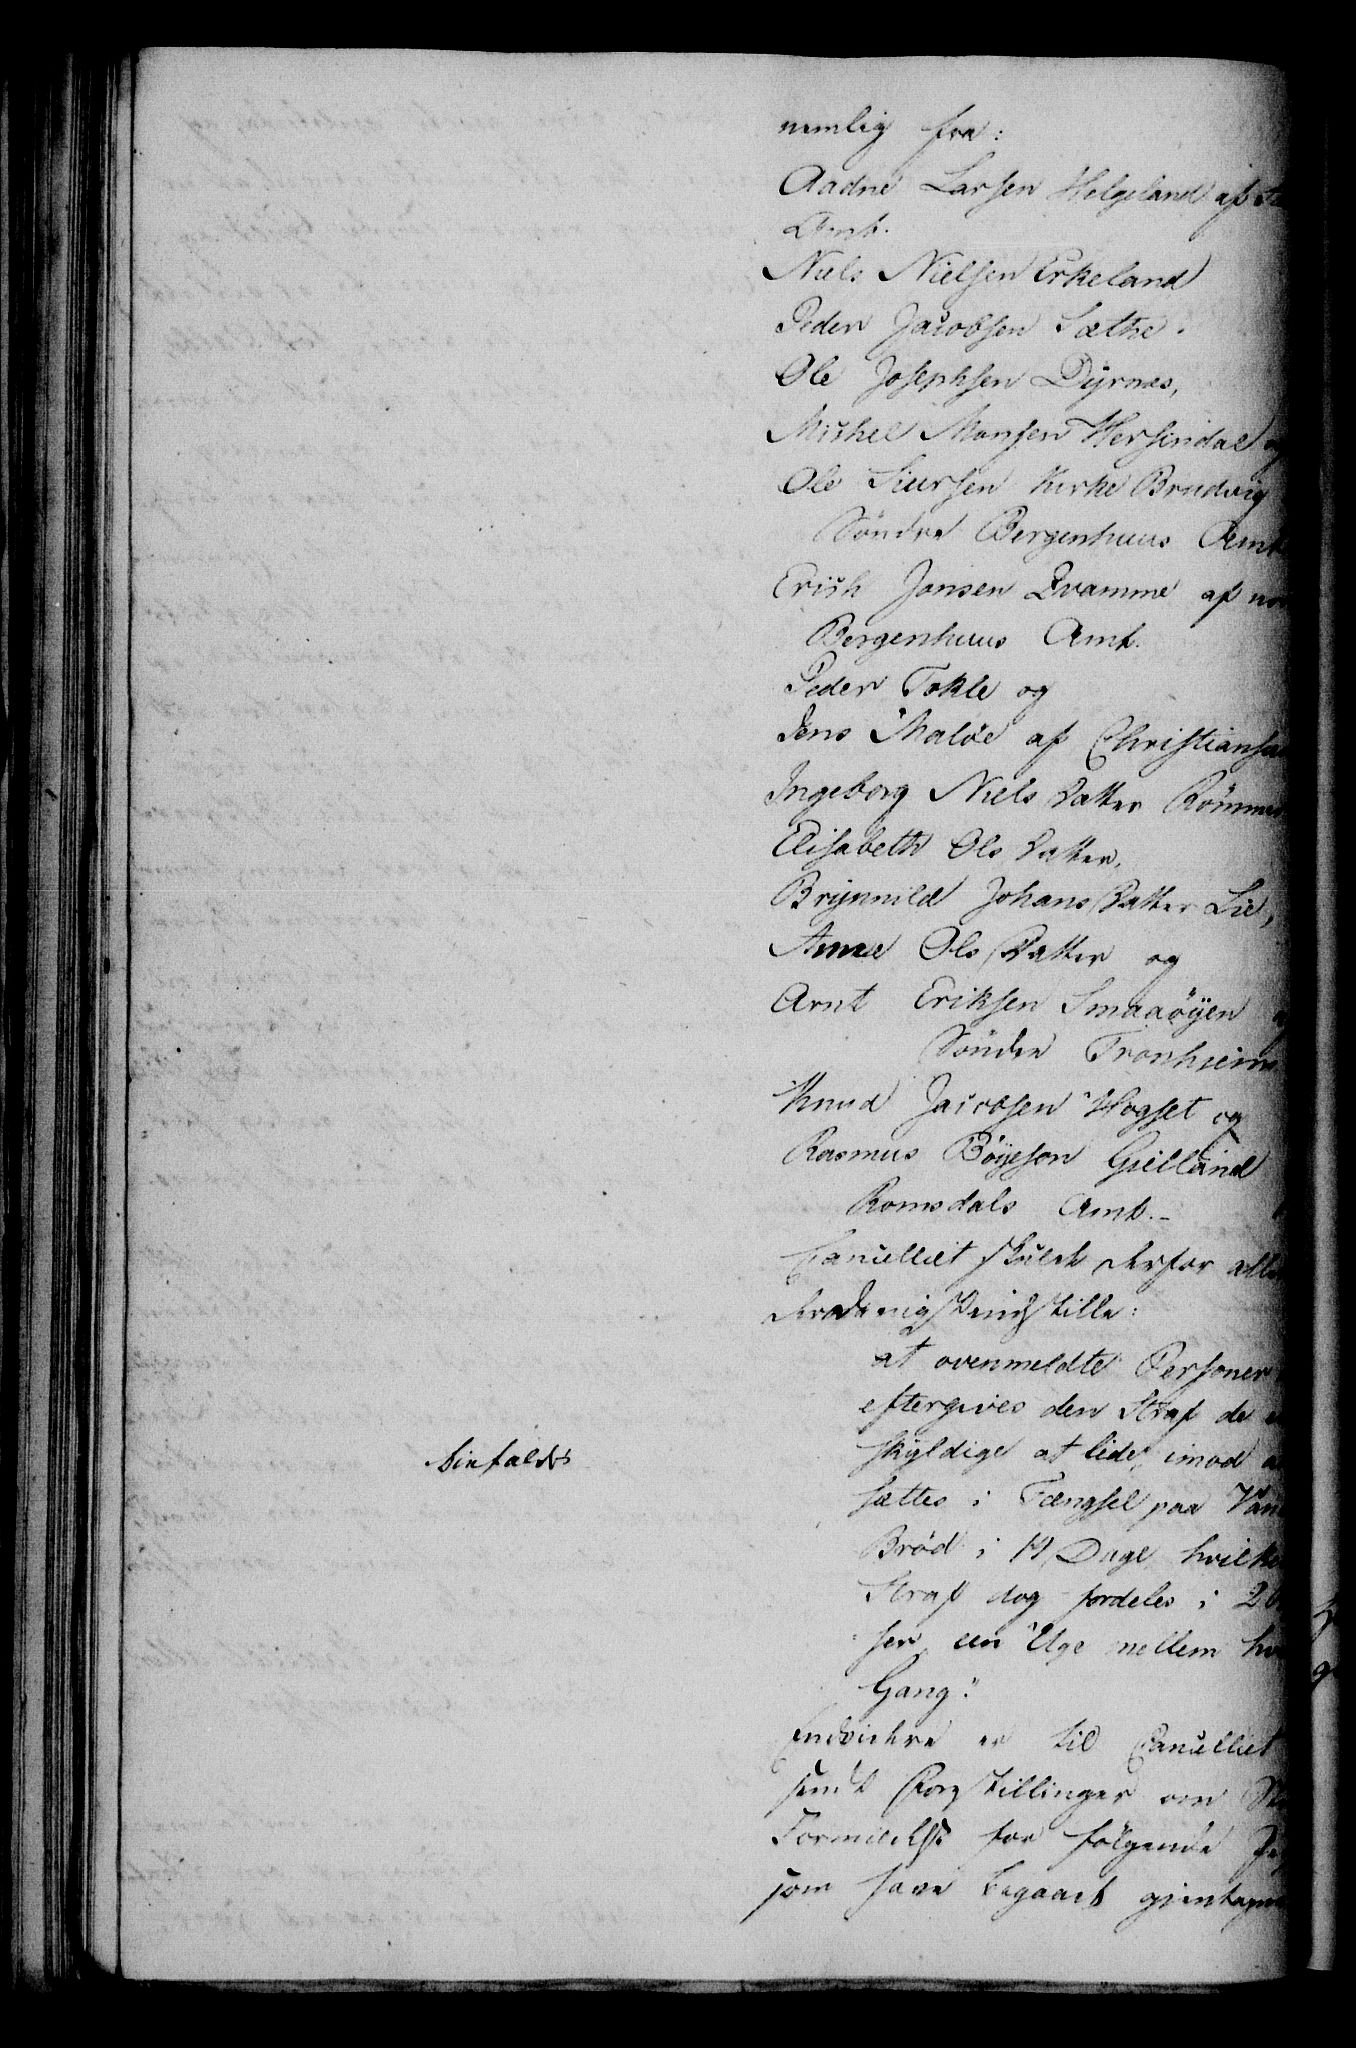 nemlig fra:
Aadne Larsen Helgeland af
Amt.
Niels Nielsen Erkeland
Peder Jacobsen Sæthe.
Ole Josephsen Dyrnæs,
Michel Monsen Hersindal og
Ole Siursen Kirke Brudvig
Söndre Bergenhuus Amt
Erich Jonsen Qvamme af
Bergenhuus Amt.
Peder Tokle og
Jens Maløe af
Ingeborg Niels Datter
Elisabeth Ols Datter,
Brynnild Johans Datter Lie,
Anne Ols Datter og
Arnt Eriksen Smaaöyen
Söndre
Knud Jacobsen Hogset og
Rasmus Böyeson Gielland
Romsdals Amt.-
Cancelliet skulde derfor
indstille:
at ovenmeldte Personer
eftergives den Straf de
skyldige at lide, imod
sættes i Fængsel paa
bifaldes
Brød i Dage, hvilken
Straf dog fordeles i 2
een Uge mellem
Gang.
Endvidere er til Cancelliet
Forestillinger om
for følgende
som have begaaet